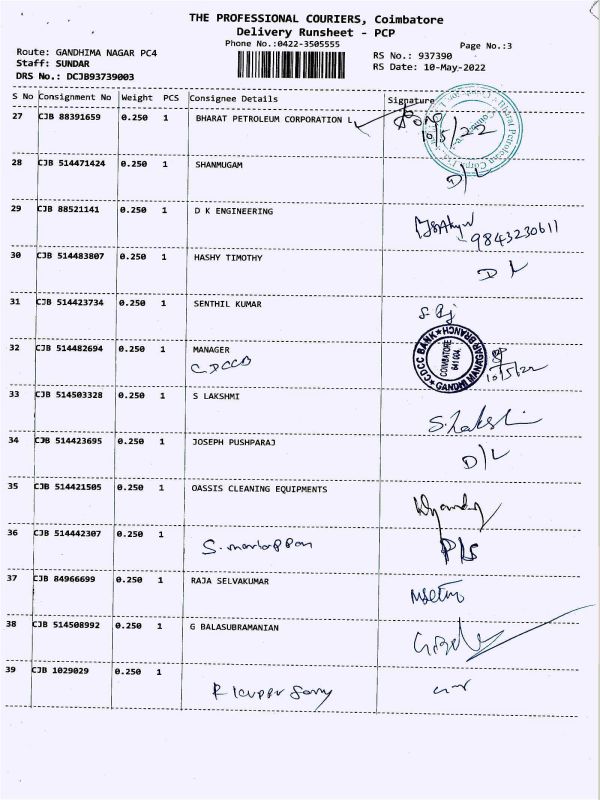 THE PROFESSIONAL COURIERS, Coimbatore
Delivery Runsheet - PCP
Phone No.:0422-3505555
Page No.:3
Route: GANDHIMA NAGAR PC4
RS No.: 937390
Staff: SUNDAR
RS Date: 10-May-2022
DRS No.: DCJB93739003
S No Consignment No Weight PCS Consignee Details Signature
27 CJB 88391659 0.250 1 BHARAT PETROLEUM CORPORATION L
10/5/22
28 CJB 514471424 0.250 1 SHANMUGAM D/L
29 CJB 88521141 0.250 1 D K ENGINEERING
9843230611
30 CJB 514483807 0.250 1 HASHY TIMOTHY D L
31 CJB 514423734 0.250 1 SENTHIL KUMAR
32 CJB 514482694 0.250 1 MANAGER
CDCCB
CDCC BANK
COIMBATORE
641004
GANDHI MANAGAR BRANCH
10/5/22
33 CJB 514503328 0.250 1 S LAKSHMI S. Lakshmi
34 CJB 514423695 0.250 1 JOSEPH PUSHPARAJ D/L
35 CJB 514421505 0.250 1 OASSIS CLEANING EQUIPMENTS
36 CJB 514442307 0.250 1 P/S
37 CJB 84966699 0.250 1 RAJA SELVAKUMAR
38 CJB 514508992 0.250 1 G BALASUBRAMANIAN
39 CJB 1029029 0.250 1